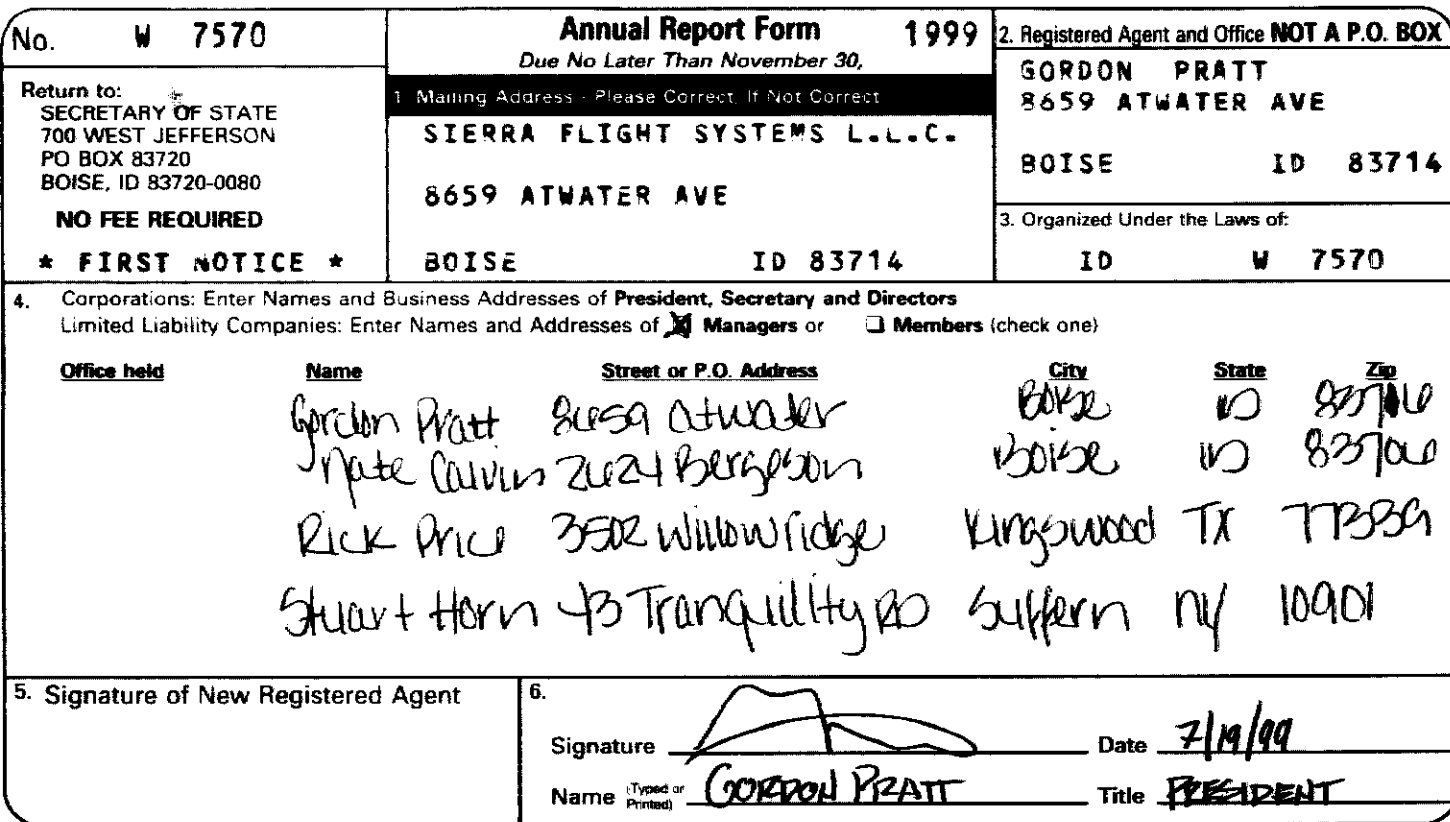 No. W 7570
Annual Report Form 1999
Due No Later Than November 30,
Return to:
SECRETARY OF STATE
700 WEST JEFFERSON
PO BOX 83720
BOISE, ID 83720-0080
NO FEE REQUIRED
* FIRST NOTICE *
1 Mailing Address - Please Correct, If Not Correct
SIERRA FLIGHT SYSTEMS L.L.C.
8659 ATWATER AVE
BOISE ID 83714
2. Registered Agent and Office NOT A P.O. BOX
GORDON PRATT
8659 ATWATER AVE
BOISE ID 83714
3. Organized Under the Laws of:
ID W 7570
4. Corporations: Enter Names and Business Addresses of President, Secretary and Directors
Limited Liability Companies: Enter Names and Addresses of Managers or Members (check one)
Office held Name Street or P.O. Address City State Zip
Gordon Pratt 8659 Atwater Boise ID
Nate Calvin 2624 Bergeson Boise ID 83706
Rick Price 3502 Willowridge Kingswood TX 77339
Stuart Horn 43 Tranquillity RD Suffern NY 10901
5. Signature of New Registered Agent
6.
Signature Date 7/19/99
Name (Typed or Printed) GORDON PRATT Title PRESIDENT